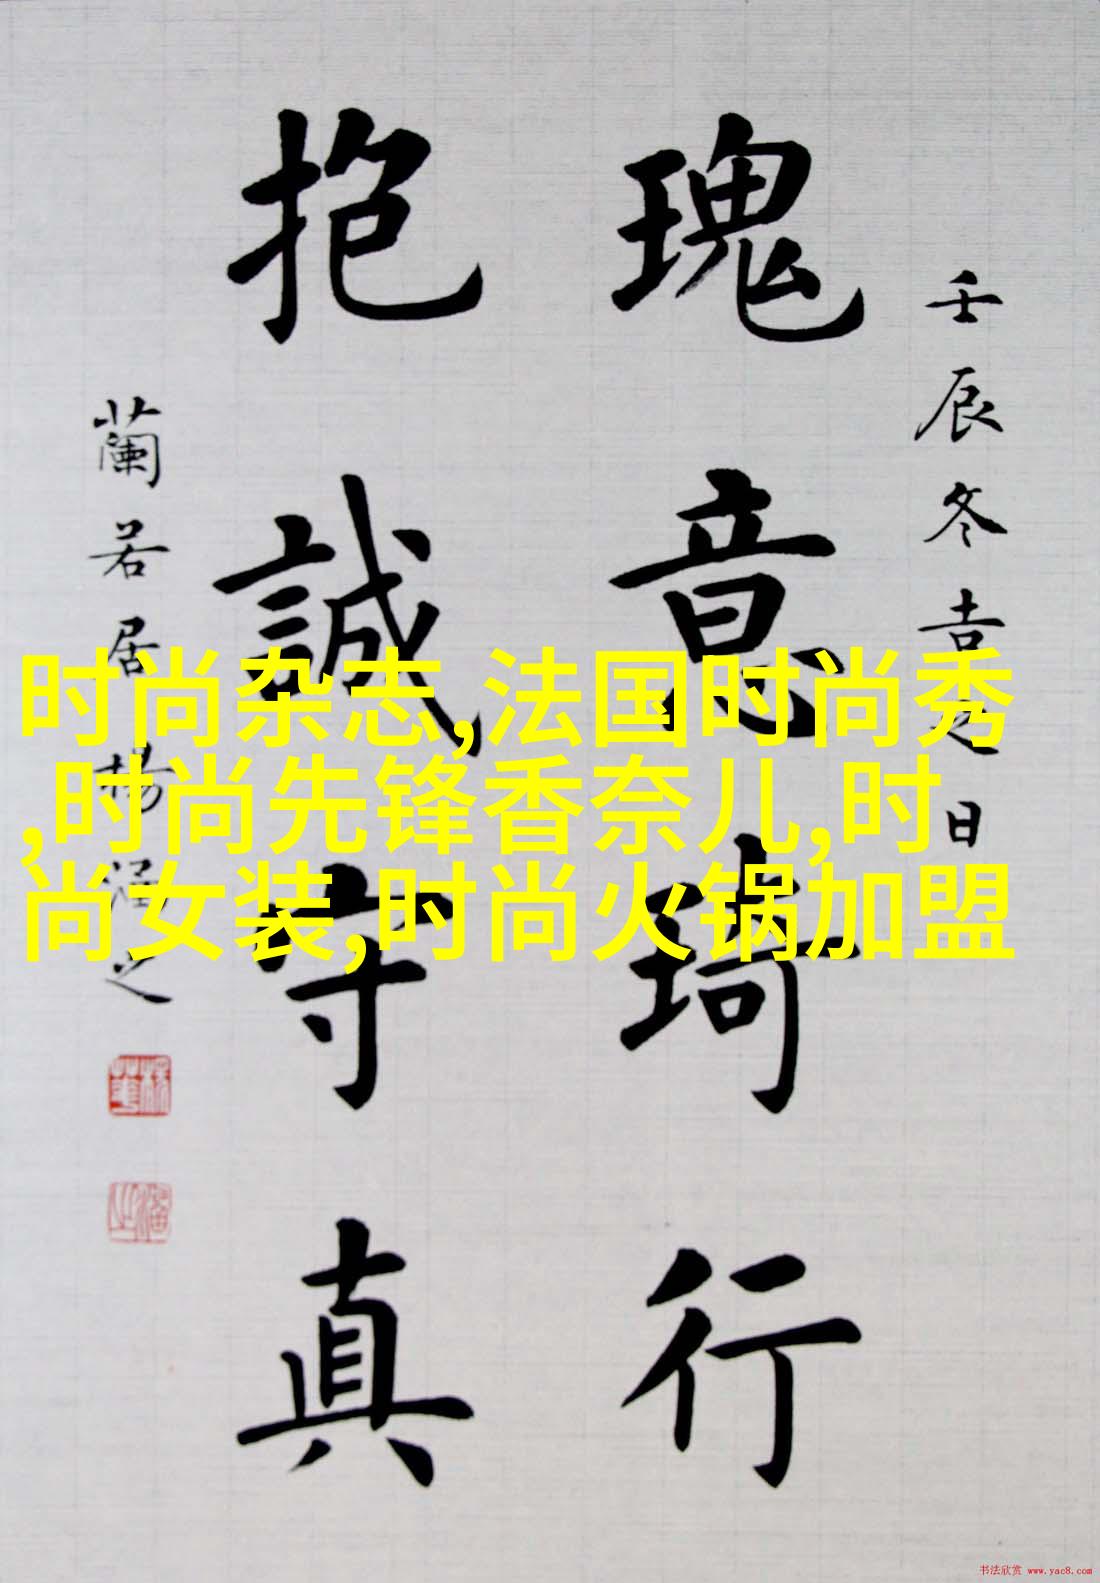 壬辰冬吉之日
瑰意琦行
抱誠守真
蘭若居楊涵之
时尚杂志,法国时尚秀
,时尚先锋香奈儿,时
尚女装,时尚火锅加盟
书法欣赏 www.yac8.com